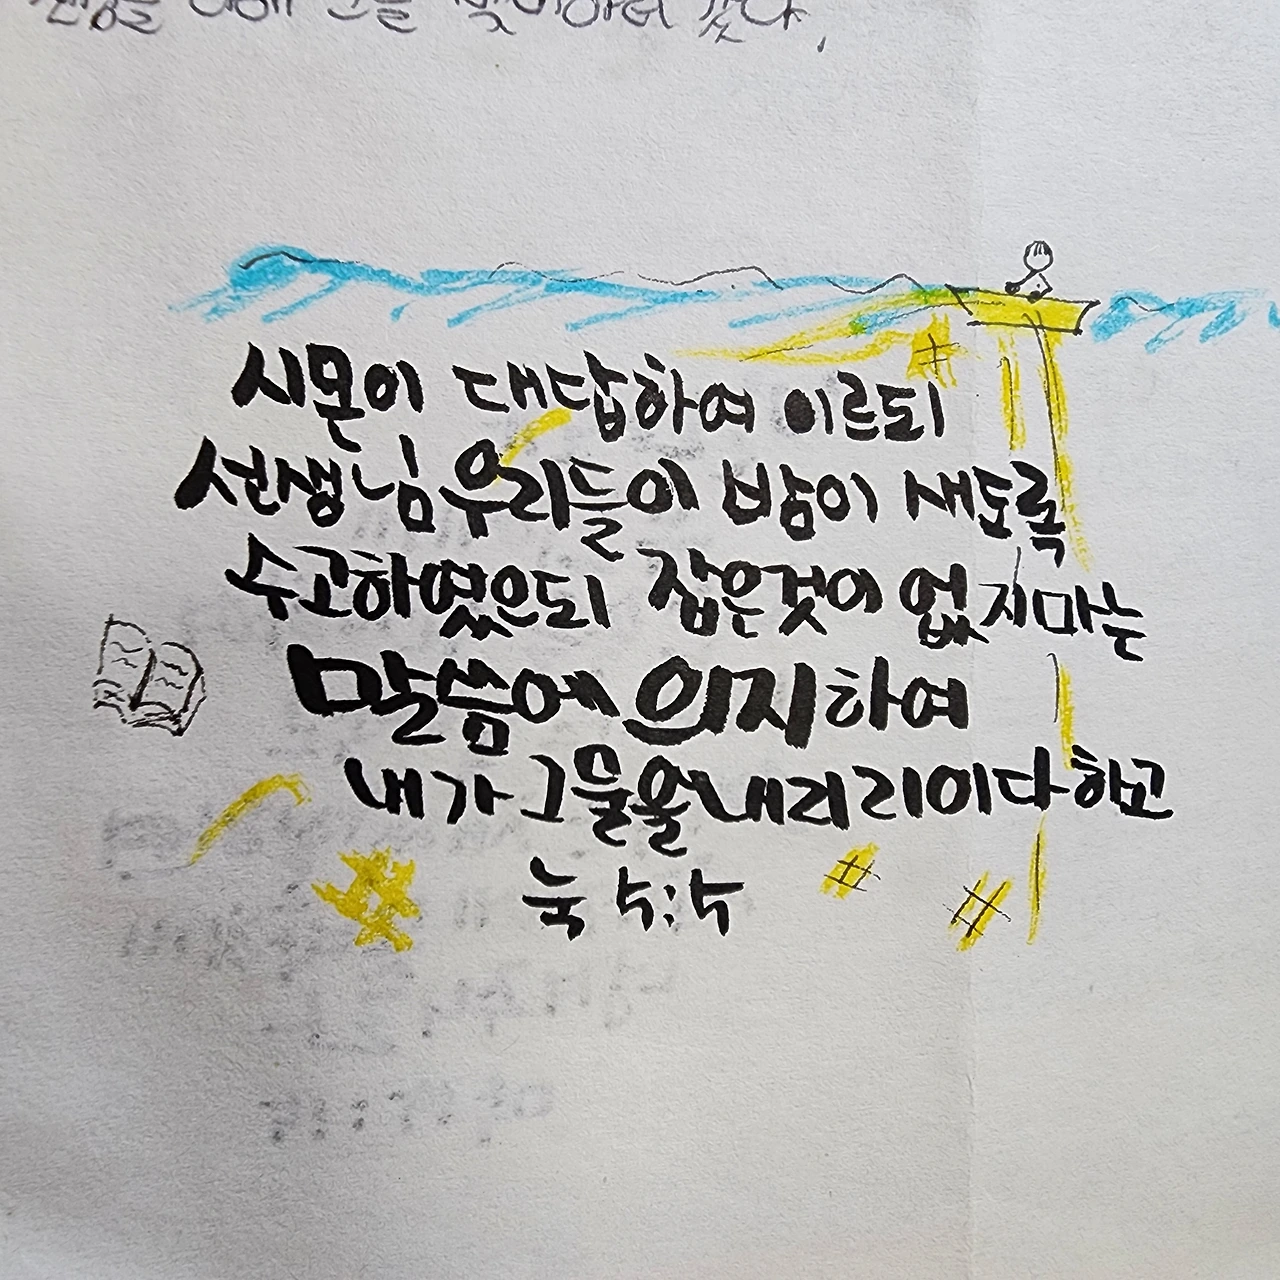 시몬이 대답하여 이르되
선생님 우리들이 밤이 새도록
수고하였으되 잡은것이 없지마는
말씀에 의지하여
내가 그물을 내리리이다 하고
눅 5:5